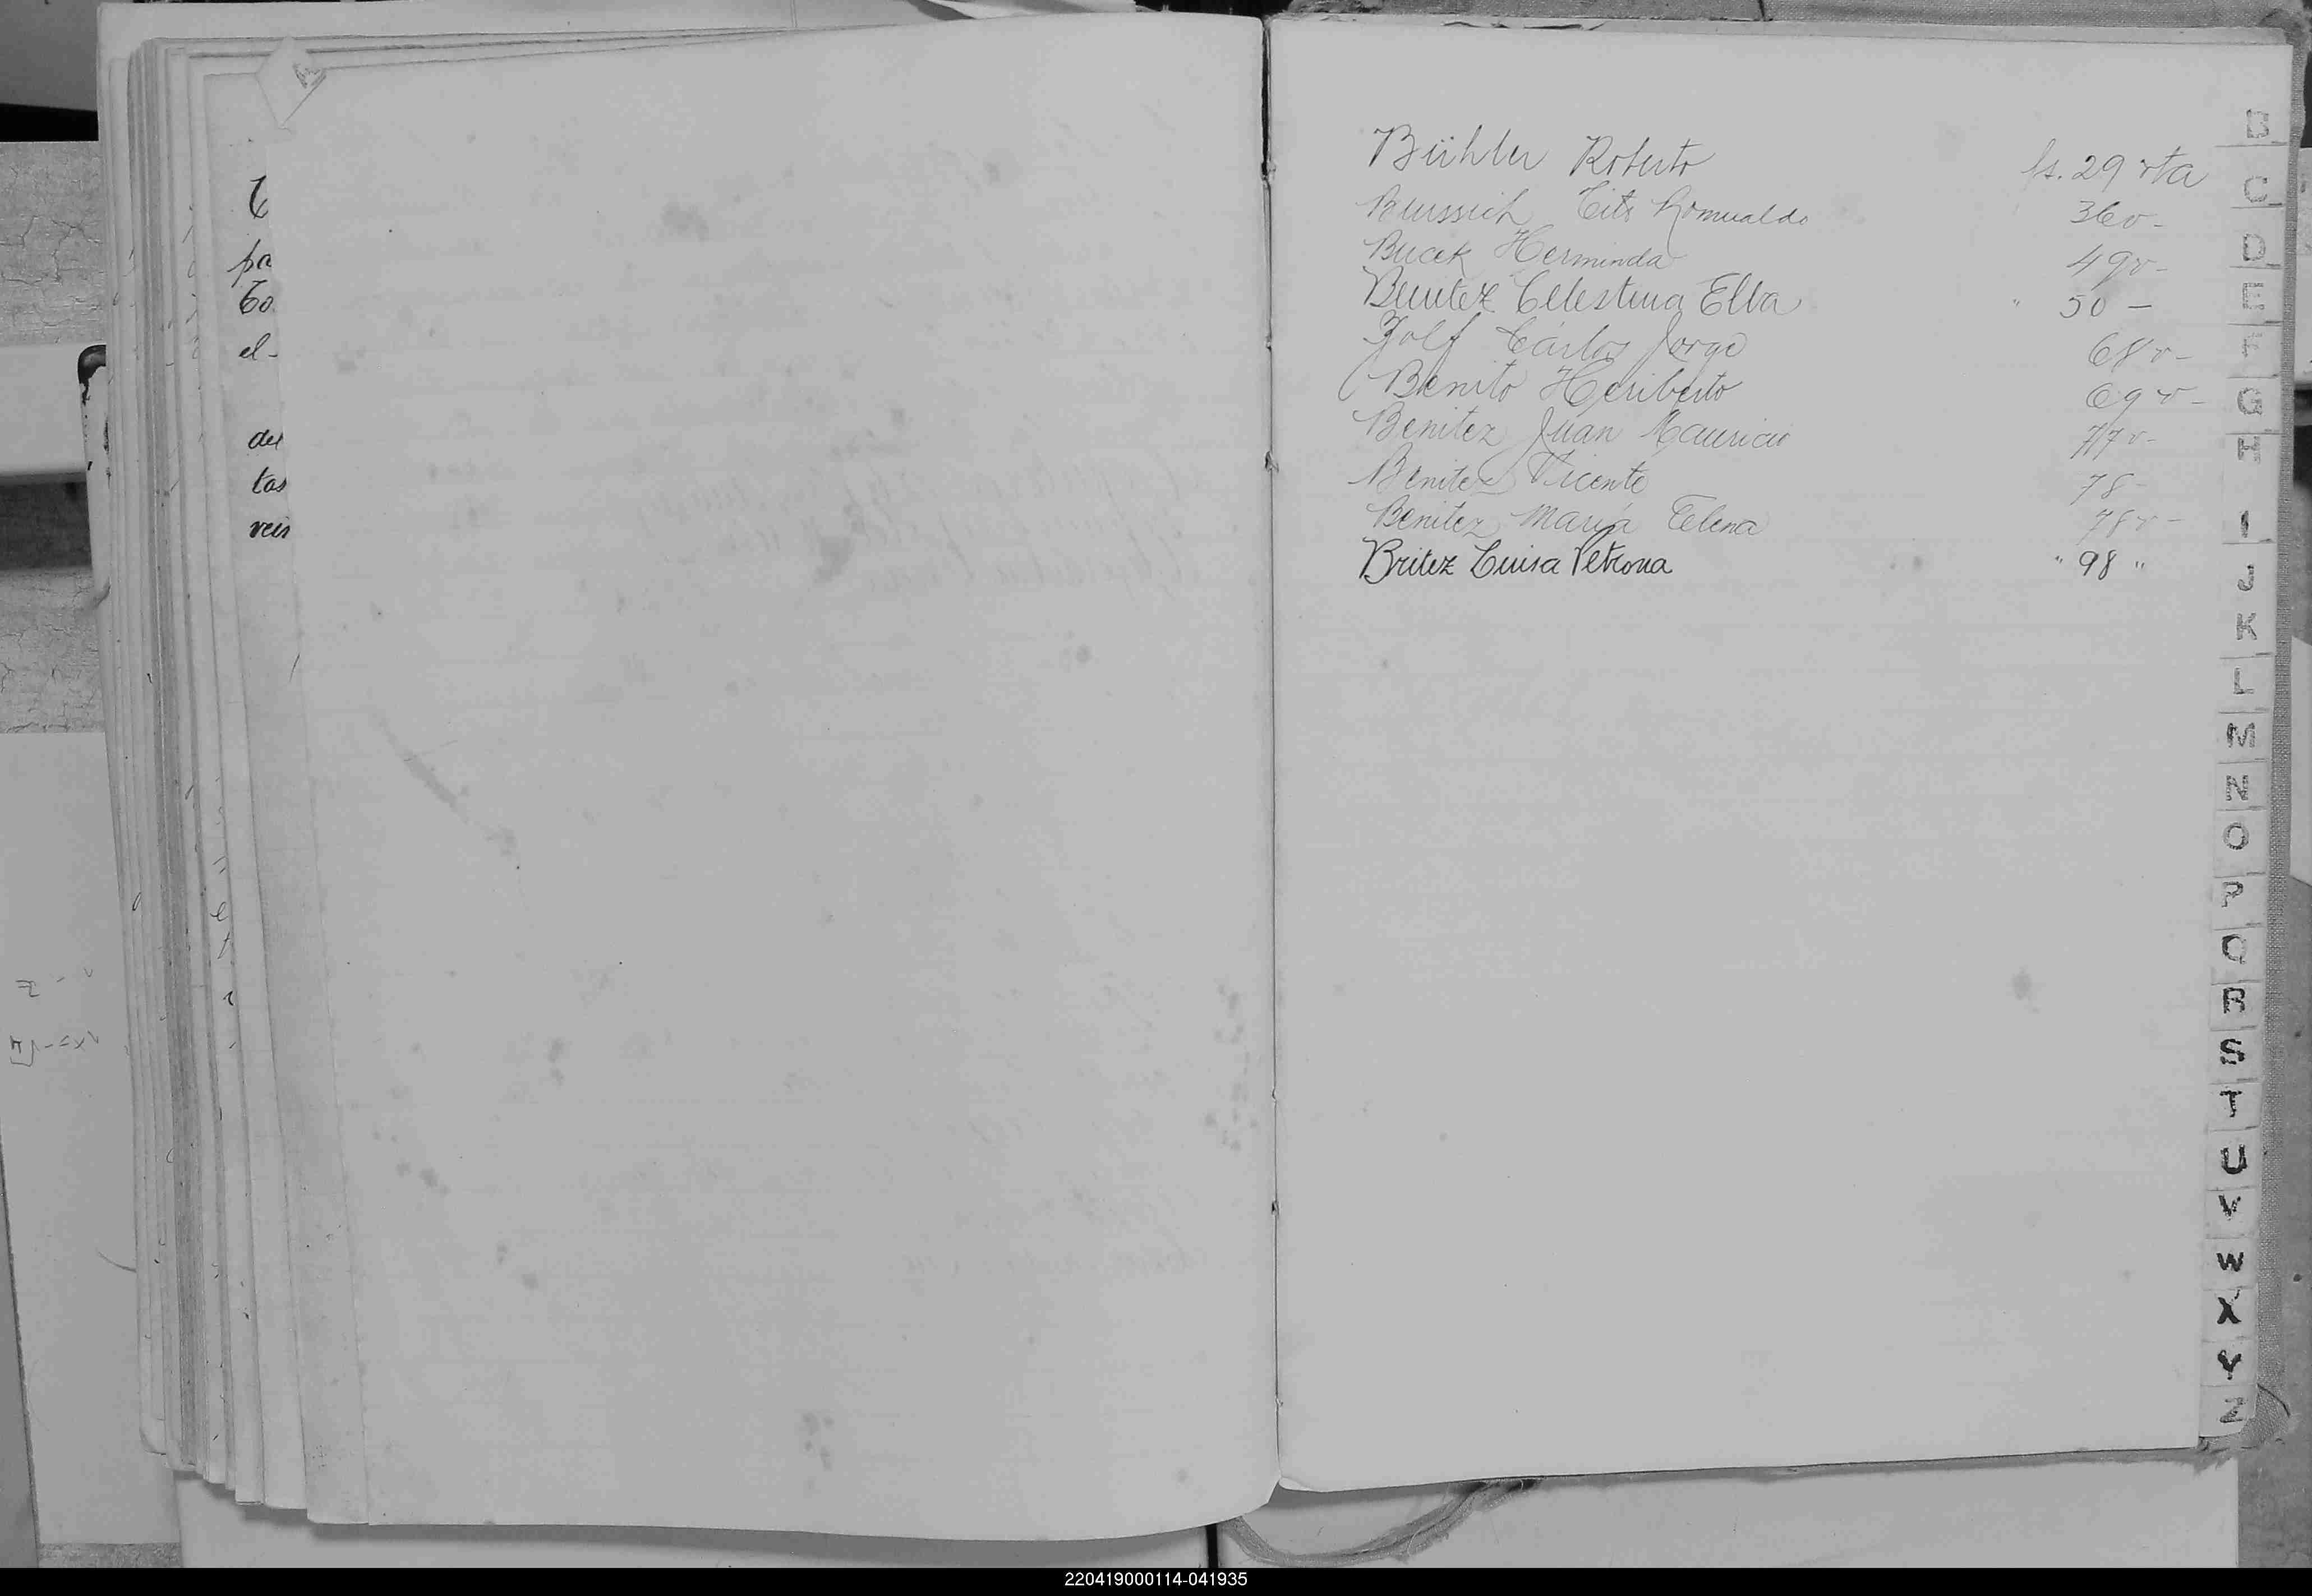 pa
el-
del
tas
Bühler Roberto fs. 29 vta
Beussich Tito Romualdo 36v-
Bucek Herminda 49v-
Benitez Celestina Elba " 50 -
Carlos Jorge 68v-
Benito Heriberto 69v-
Benitez Juan Mauricio 77v-
Benitez Vicente 78-
Benitez María Elena 78v-
Britez Luisa Petrona " 98 "
B
C
D
E
F
G
H
I
J
K
L
M
N
O
P
Q
R
S
T
U
V
W
X
Y
Z
220419000114-041935